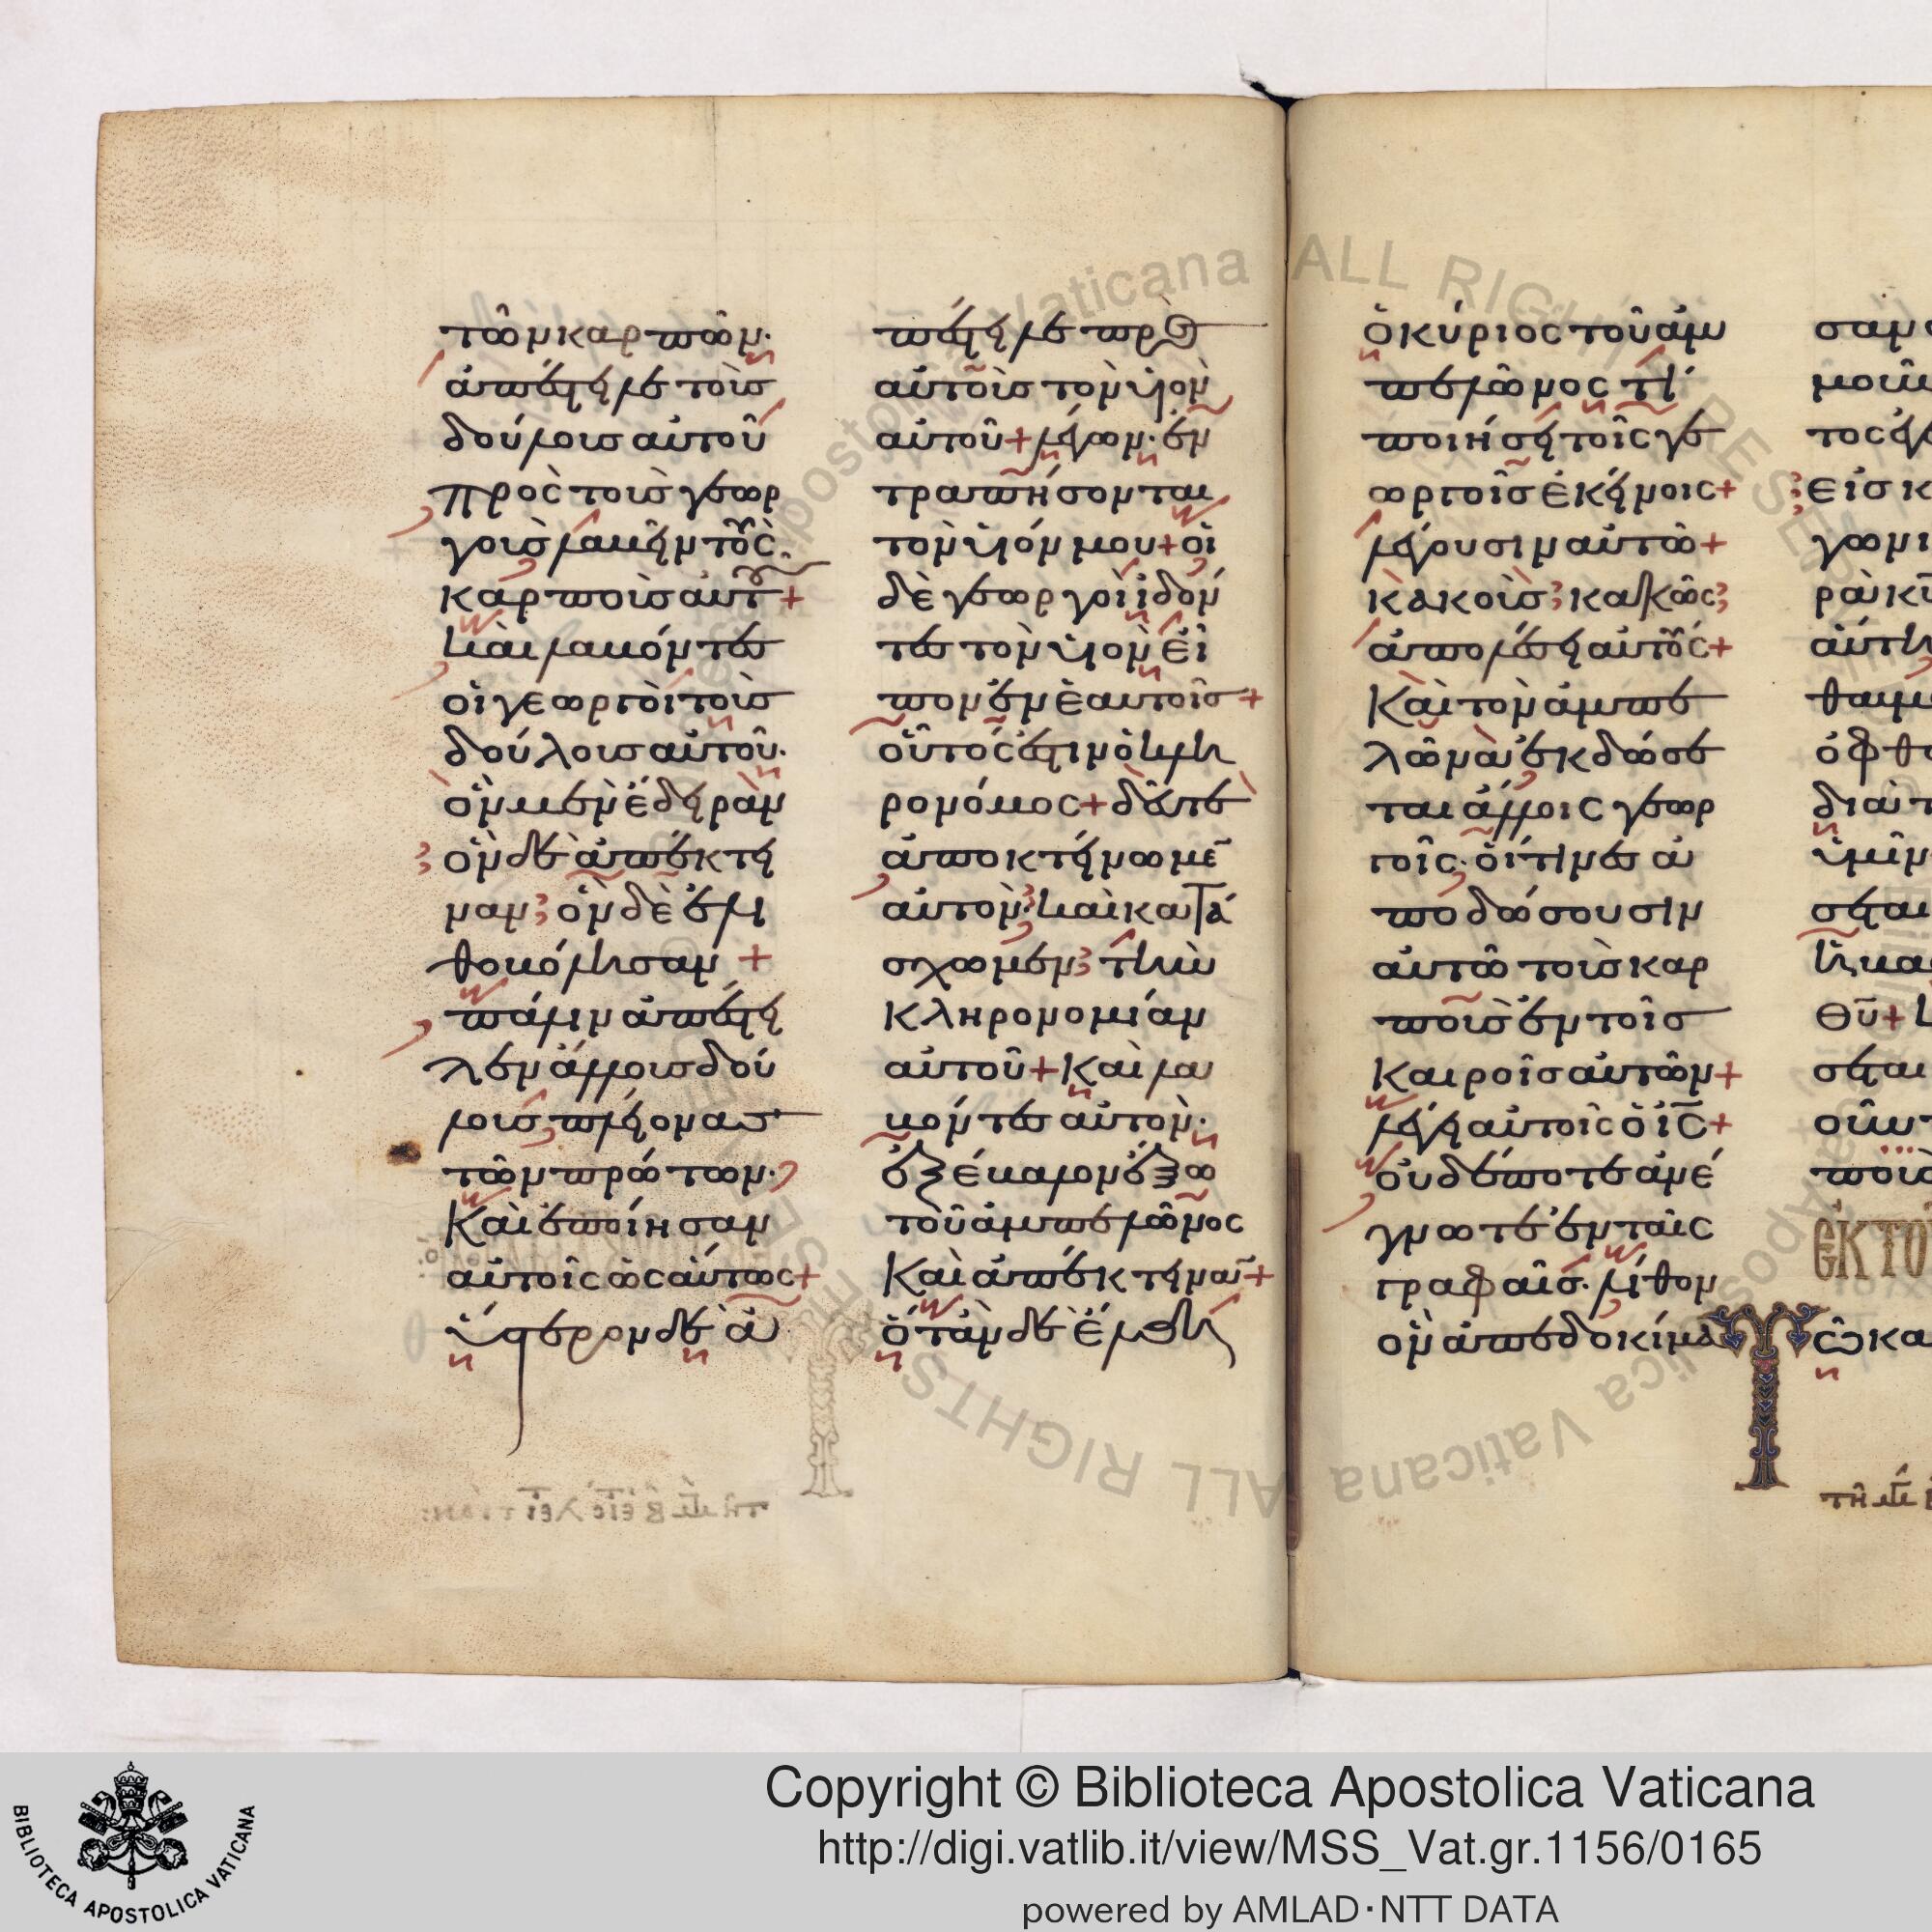 τῶν καρπῶν·
ἀπέστειλε τοὺσ
δούλουσ αὐτοῦ
πρὸς τοὺσ γεωρ
γοὺσ λαβεῖν τοὺς
καρποὺσ αὐτ +
Καὶ λαβόντεσ
οἱ γεωργοὶ τοὺσ
δούλουσ αὐτοῦ·
ὃν μὲν ἔδειραν
ὃν δὲ ἀπέκτει
ναν· ὃν δὲ ἐλι
θοβόλησαν +
πάλιν ἀπέστει
λεν ἄλλουσ δού
λουσ πλείονασ
τῶν πρώτων·
Καὶ ἐποίησαν
αὐτοῖς ὡσαύτως +
ὕστερον δὲ ἀ
πέστειλε πρὸς
αὐτοὺσ τὸν υἱὸν
αὐτοῦ + λέγων· ἐν
τραπήσονται
τὸν υἱόν μου + οἱ
δὲ γεωργοὶ ἰδόν
τεσ τὸν υἱὸν εἶ
πον ἐν ἑαυτοῖσ +
οὗτός ἐστιν ὁ κλη
ρονόμος + δεῦτε
ἀποκτείνωμε̄
αὐτὸν· καὶ κατά
σχωμεν· τὴν
κληρονομίαν
αὐτοῦ + Καὶ λα
βόντεσ αὐτὸν·
ἐξέβαλον ἔξω
τοῦ ἀμπελῶνος
Καὶ ἀπέκτειναν +
ὅταν δὲ ἔλθη
ὁ κύριος τοῦ ἀμ
πελῶνος τί
ποιήσει τοῖς γε
ωργοῖσ ἐκείνοις +
λέγουσιν αὐτῶ +
κακοὺσ· κακῶς·
ἀπολέσει αὐτοὺς +
Καὶ τὸν ἀμπε
λῶνα ἐκδώσε
ται ἄλλοις γεωρ
γοῖς· οἵτινεσ ἀ
ποδώσουσιν
αὐτῶ τοὺσ καρ
ποὺσ ἐν τοῖσ
καιροῖσ αὐτῶν +
λέγει αὐτοῖς ὁ ἰς̄ +
οὐδέποτε ἀνέ
γνωτε ἐν ταῖς
γραφαῖσ· λίθον
ὃν ἀπεδοκίμα
Copyright © Biblioteca Apostolica Vaticana
http://digi.vatlib.it/view/MSS_Vat.gr.1156/0165
powered by AMLAD·NTT DATA
BIBLIOTECA APOSTOLICA VATICANA